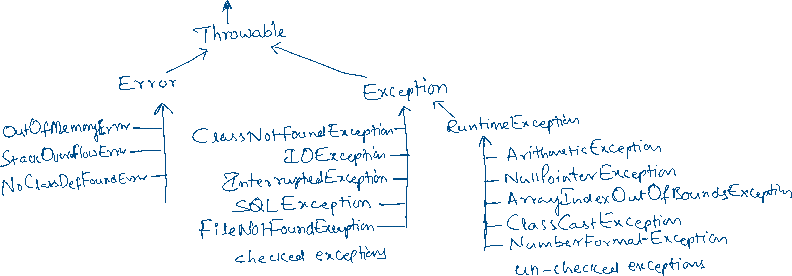 Throwable
Error
Exception
OutOfMemoryError
StackOverflowError
NoClassDefFoundError
ClassNotFoundException
IOException
InterruptedException
SQLException
FileNotFoundException
checked exceptions
RuntimeException
ArithmeticException
NullPointerException
ArrayIndexOutOfBoundsException
ClassCastException
NumberFormatException
un-checked exceptions